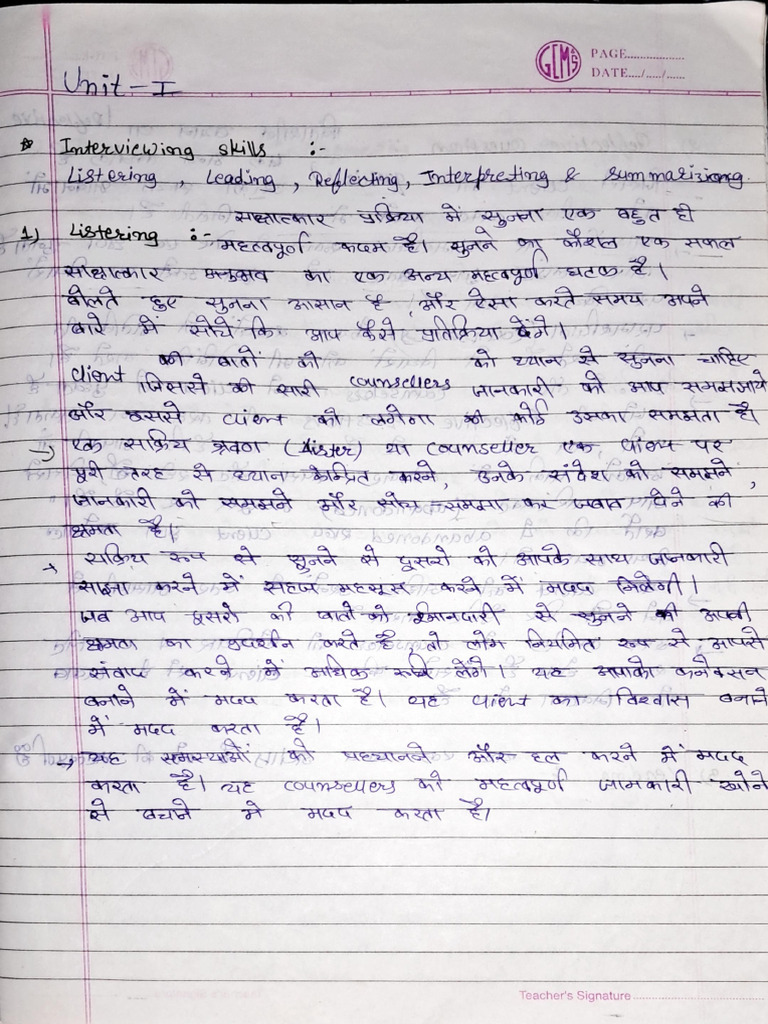 GEMS
PAGE..................
DATE..../...../......
Unit - I
* Interviewing skills :-
Listering, Leading, Reflecting, Interpreting & summarizing.
साक्षात्कार प्रक्रिया में सुनना एक बहुत ही
1) Listering :- महत्वपूर्ण कदम है। सुनने का कौशल एक सफल
साक्षात्कार अनुभव का एक अन्य महत्वपूर्ण घटक है।
बोलते हुए सुनना आसान है, और ऐसा करते समय अपने
बारे में सोचे कि आप कैसे प्रतिक्रिया देंगे।
client की बातों को counsellers को ध्यान से सुनना चाहिए
जिससे की सारी जानकारी को आप समझ जाये
और इससे client को लगेगा की कोई उसका समझता है।
→ एक सक्रिय श्रवण (Lister) या counseller एक client पर
पूरी तरह से ध्यान केन्द्रित करने, उनके संदेश को समझने,
जानकारी को समझने और सोच समझ कर जवाब देने की
क्षमता है।
→ सक्रिय रूप से सुनने से दूसरो को आपके साथ जानकारी
साझा करने में सहज महसूस करने में मदद मिलेगी।
जब आप दूसरो की बातो को ईमानदारी से सुनने की अपनी
क्षमता का प्रदर्शन करते है तो लोग नियमित रूप से आपसे
संवाद करने में अधिक रूचि लेंगे। यह आपको कनेक्सन
बनाने में मदद करता है। यह client का विश्वास बनाने
में मदद करता है।
→ यह समस्याओं को पहचानने और हल करने में मदद
करता है। यह counsellers को महत्वपूर्ण जानकारी खोने
से बचाने मे मदद करता है।
Teacher's Signature..........................